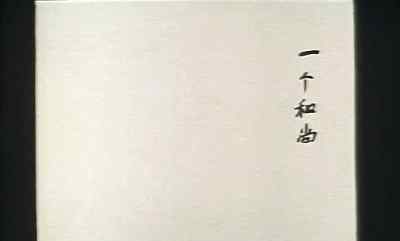 一个和尚